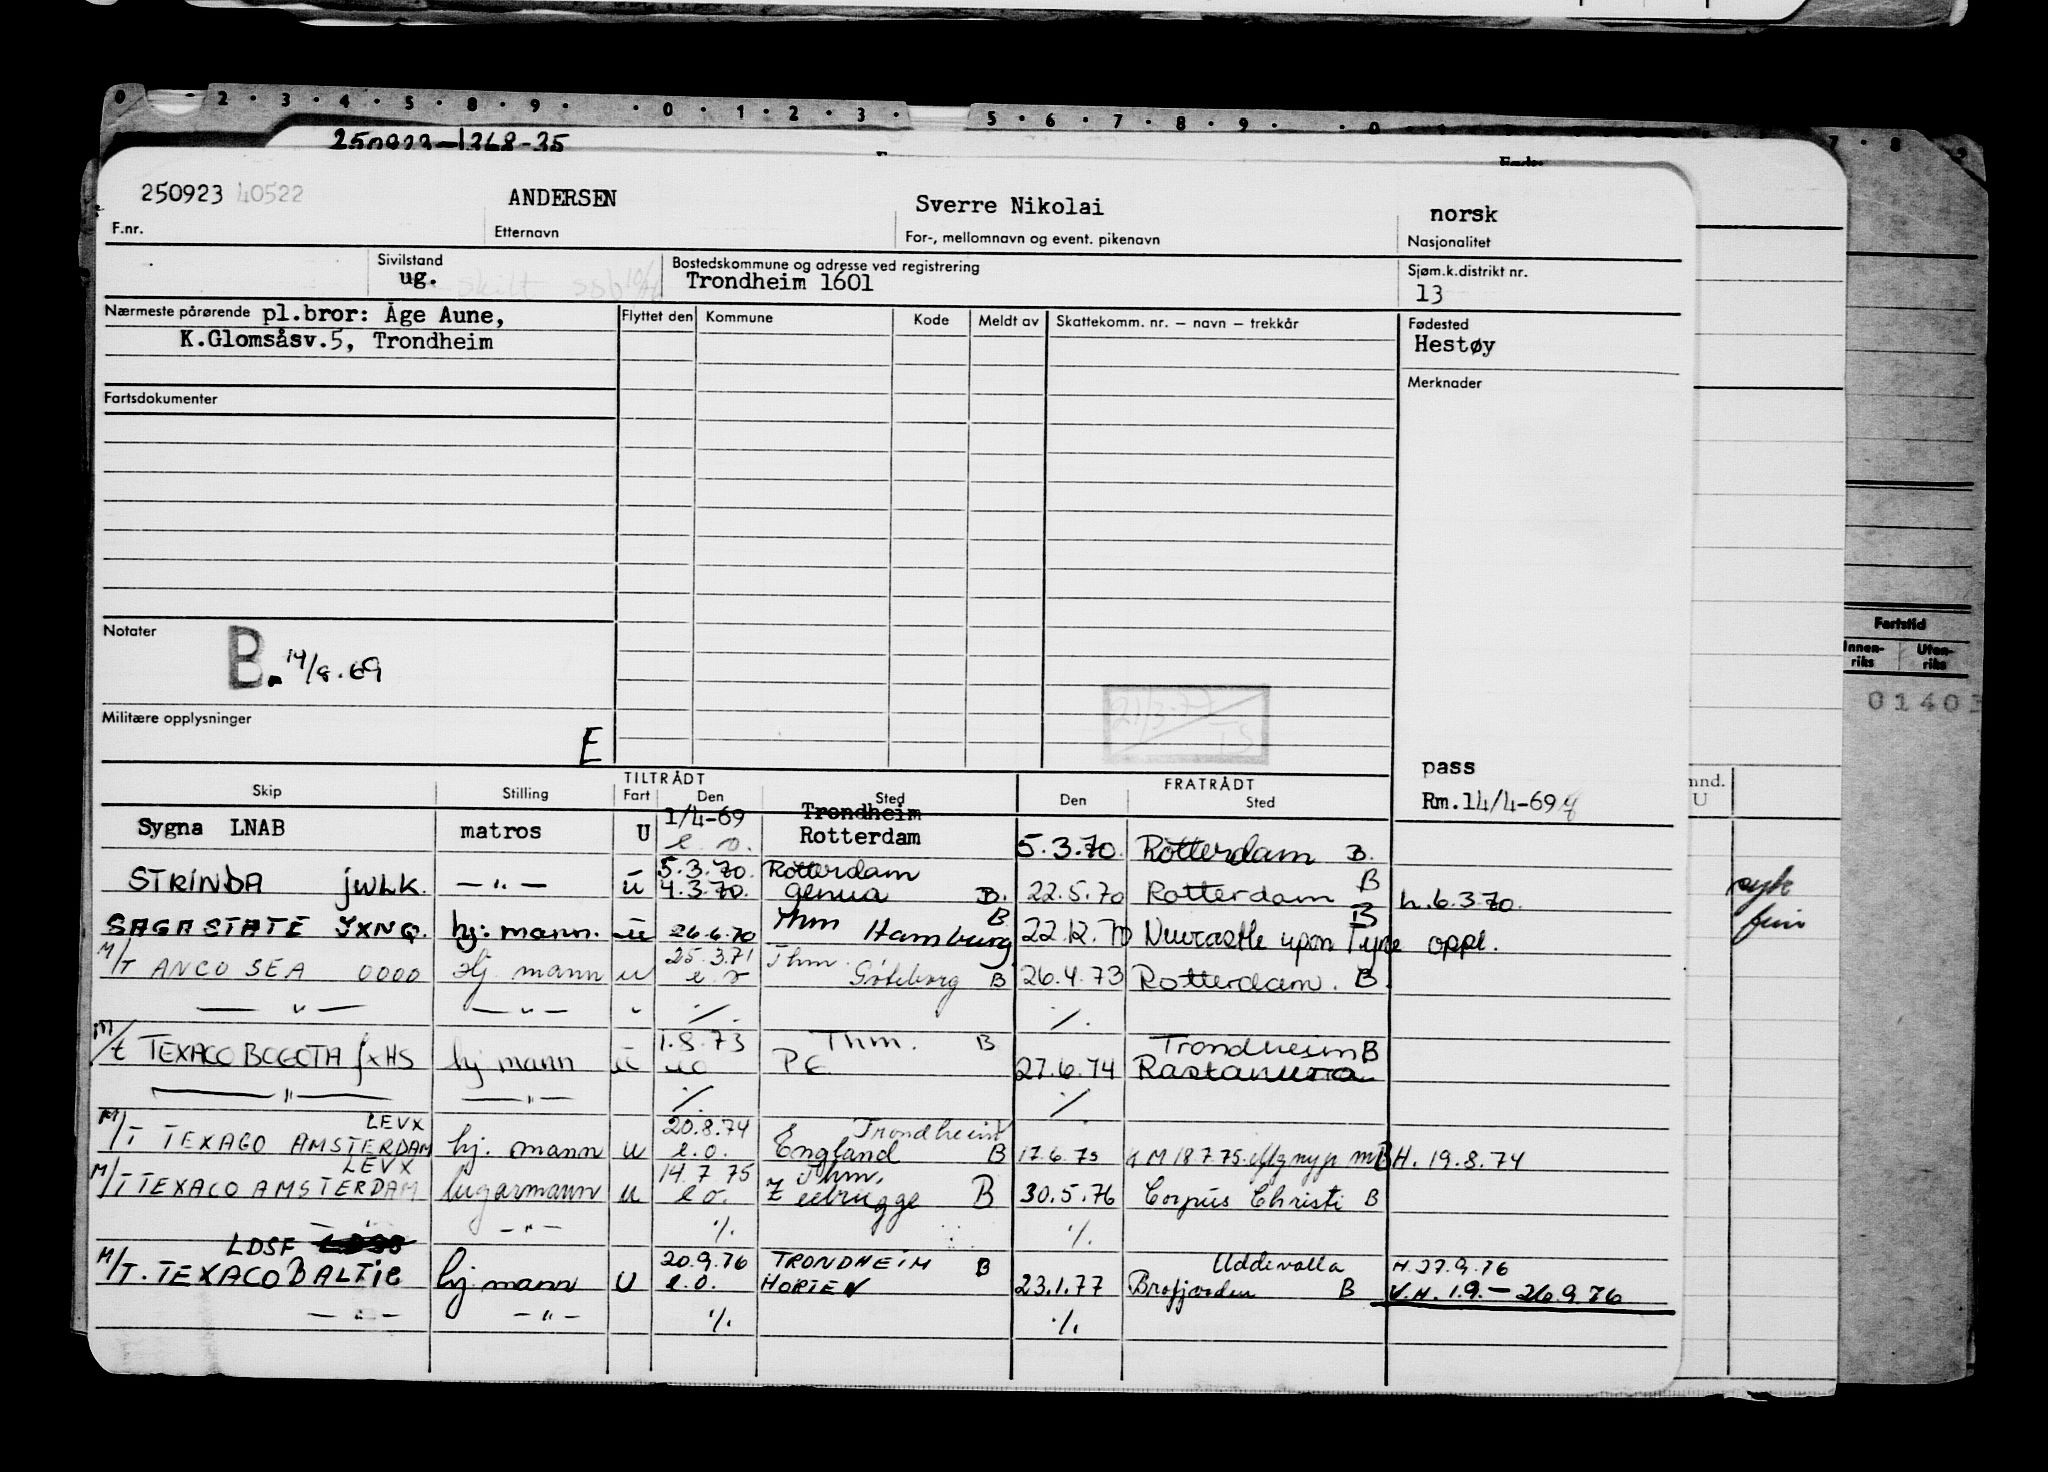 250923-1368-35
250923 40522 ANDERSEN Sverre Nikolai norsk
F.nr. Etternavn For-, mellomnavn og event. pikenavn Nasjonalitet
Sivilstand Bostedskommune og adresse ved registrering Sjøm.k.distrikt nr.
ug. skilt Trondheim 1601 13
Nærmeste pårørende pl.bror: Åge Aune, Flyttet den Kommune Kode Meldt av Skattekomm. nr. – navn – trekkår Fødested
K.Glomsåsv.5, Trondheim Hestøy
Merknader
Fartsdokumenter
Fartstid
Innen-riks Uten-riks
Notater
B. 14/8.69
01403
Militære opplysninger
E
21/3-77
pass
TILTRÅDT FRATRÅDT
Skip Stilling Fart Den Sted Den Sted Rm.14/4-69
mnd.
U
Sygna LNAB matros U 1/4-69 Trondheim
Rotterdam 5.3.70. Rotterdam B.
STRINDA JWLK. — " — U 5.3.70. Rotterdam
4.3.70. Genua B. 22.5.70 Rotterdam B h.6.3.70.
SAGA STATE JXNQ. hj: mann. U 26.6.70 Thm Hamburg B 22.12.70 Newcastle upon Tyne B oppl.
M/T ANCO SEA 0000 Hj mann U 25.3.71 Thm.
Göteborg B 26.4.73 Rotterdam. B
— " — — " — " ./. ./.
M/t TEXACO BOGOTA JXHS hj mann U 1.8.73 Thm. B
uo PG 27.6.74 Trondheim B
Rastanura
— " — — " — ./. ./.
M/T TEXAGO AMSTERDAM LEVX hj. mann U 20.8.74 Trondheim
e.o. England B 17.6.75 M 18.7.75. B H. 19.8.74
M/T TEXACO AMSTERDAM LEVX lugarmann U 14.7.75 Thm.
e o. Zeebrugge B 30.5.76 Corpus Christi B
— " — — " — ./. ./.
LDSF
M/T. TEXACO BALTIC hj mann U 20.9.76 TRONDHEIM B
e.o. HORTEN 23.1.77 Uddevalla
Brofjorden B H.27.9.76
V.H. 1.9.— 26.9.76
— " — — " — ./. ./.